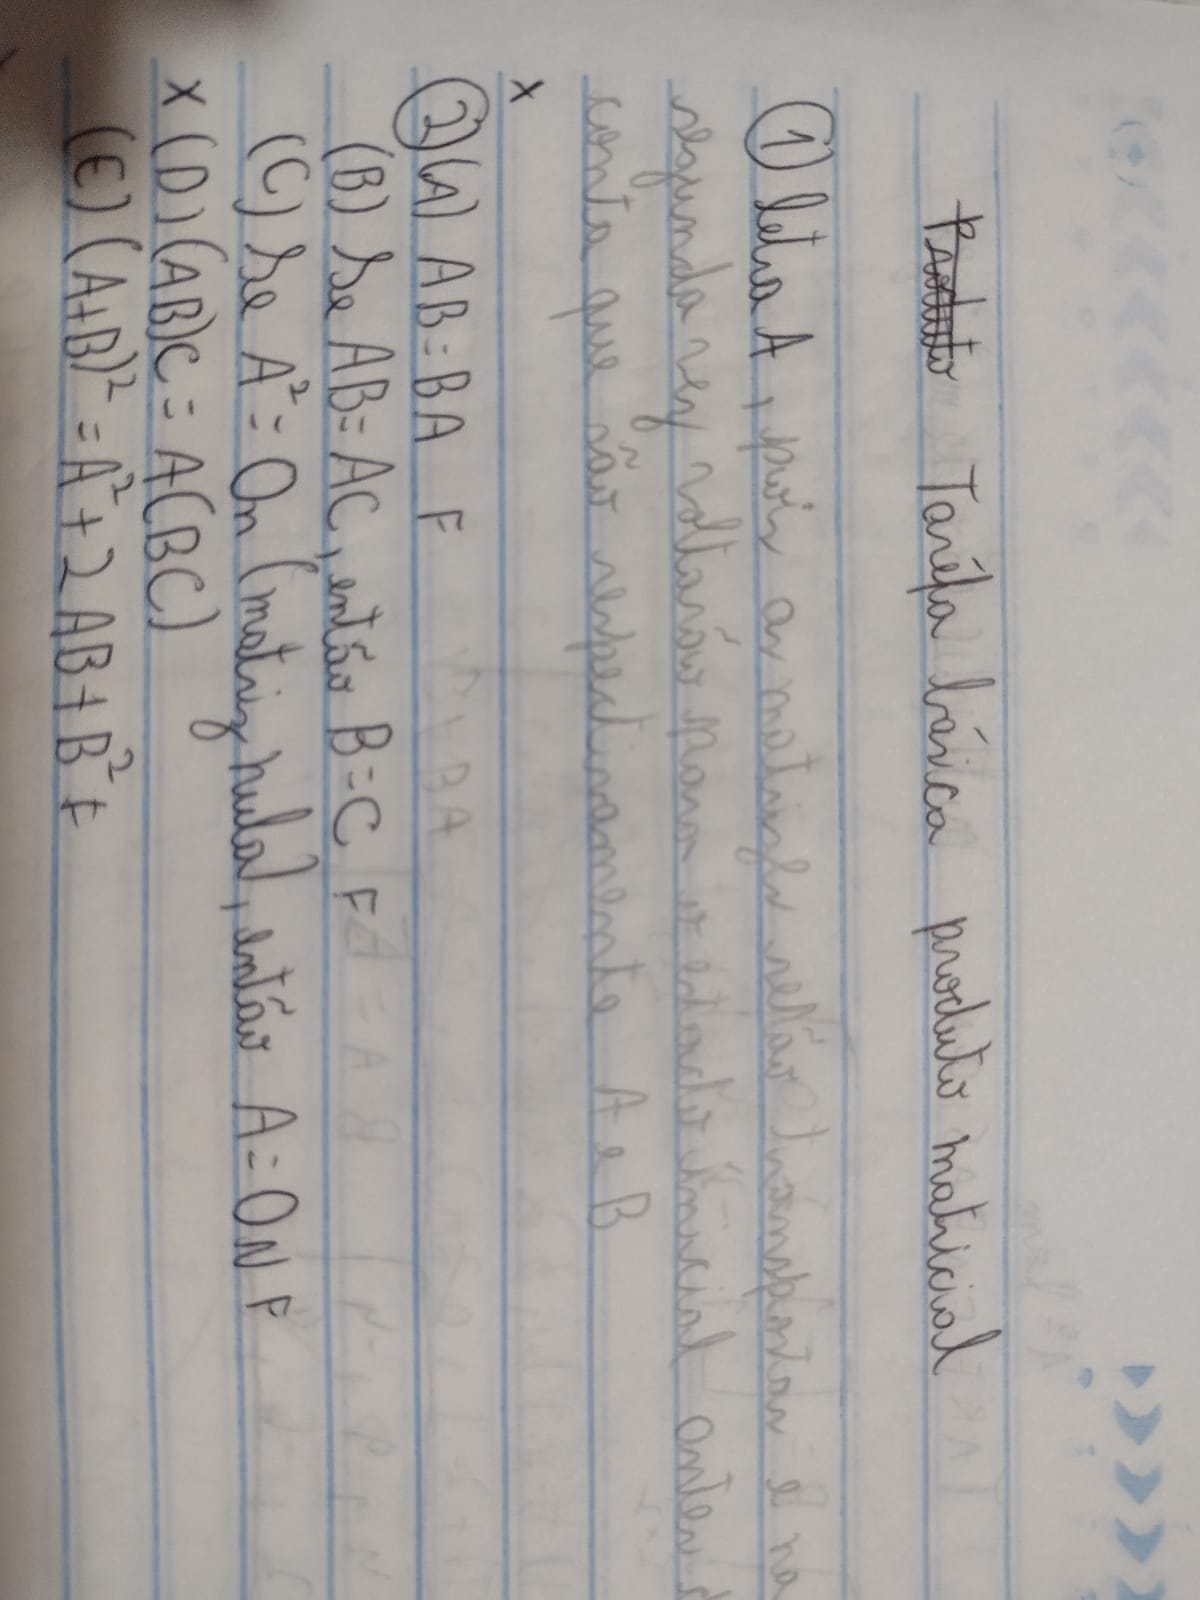 Tarefa básica produto matricial
① letra A, pois as matrizes serão transpostas e na
segunda vez voltarão para o estado inicial antes d
conta que são respectivamente A e B
x
② (A) AB=BA F
(B) Se AB=AC, então B=C F
(C) Se A²=On (matriz nula), então A=ON F
x (D) (AB)C=A(BC)
(E) (A+B)²=A²+2AB+B² F